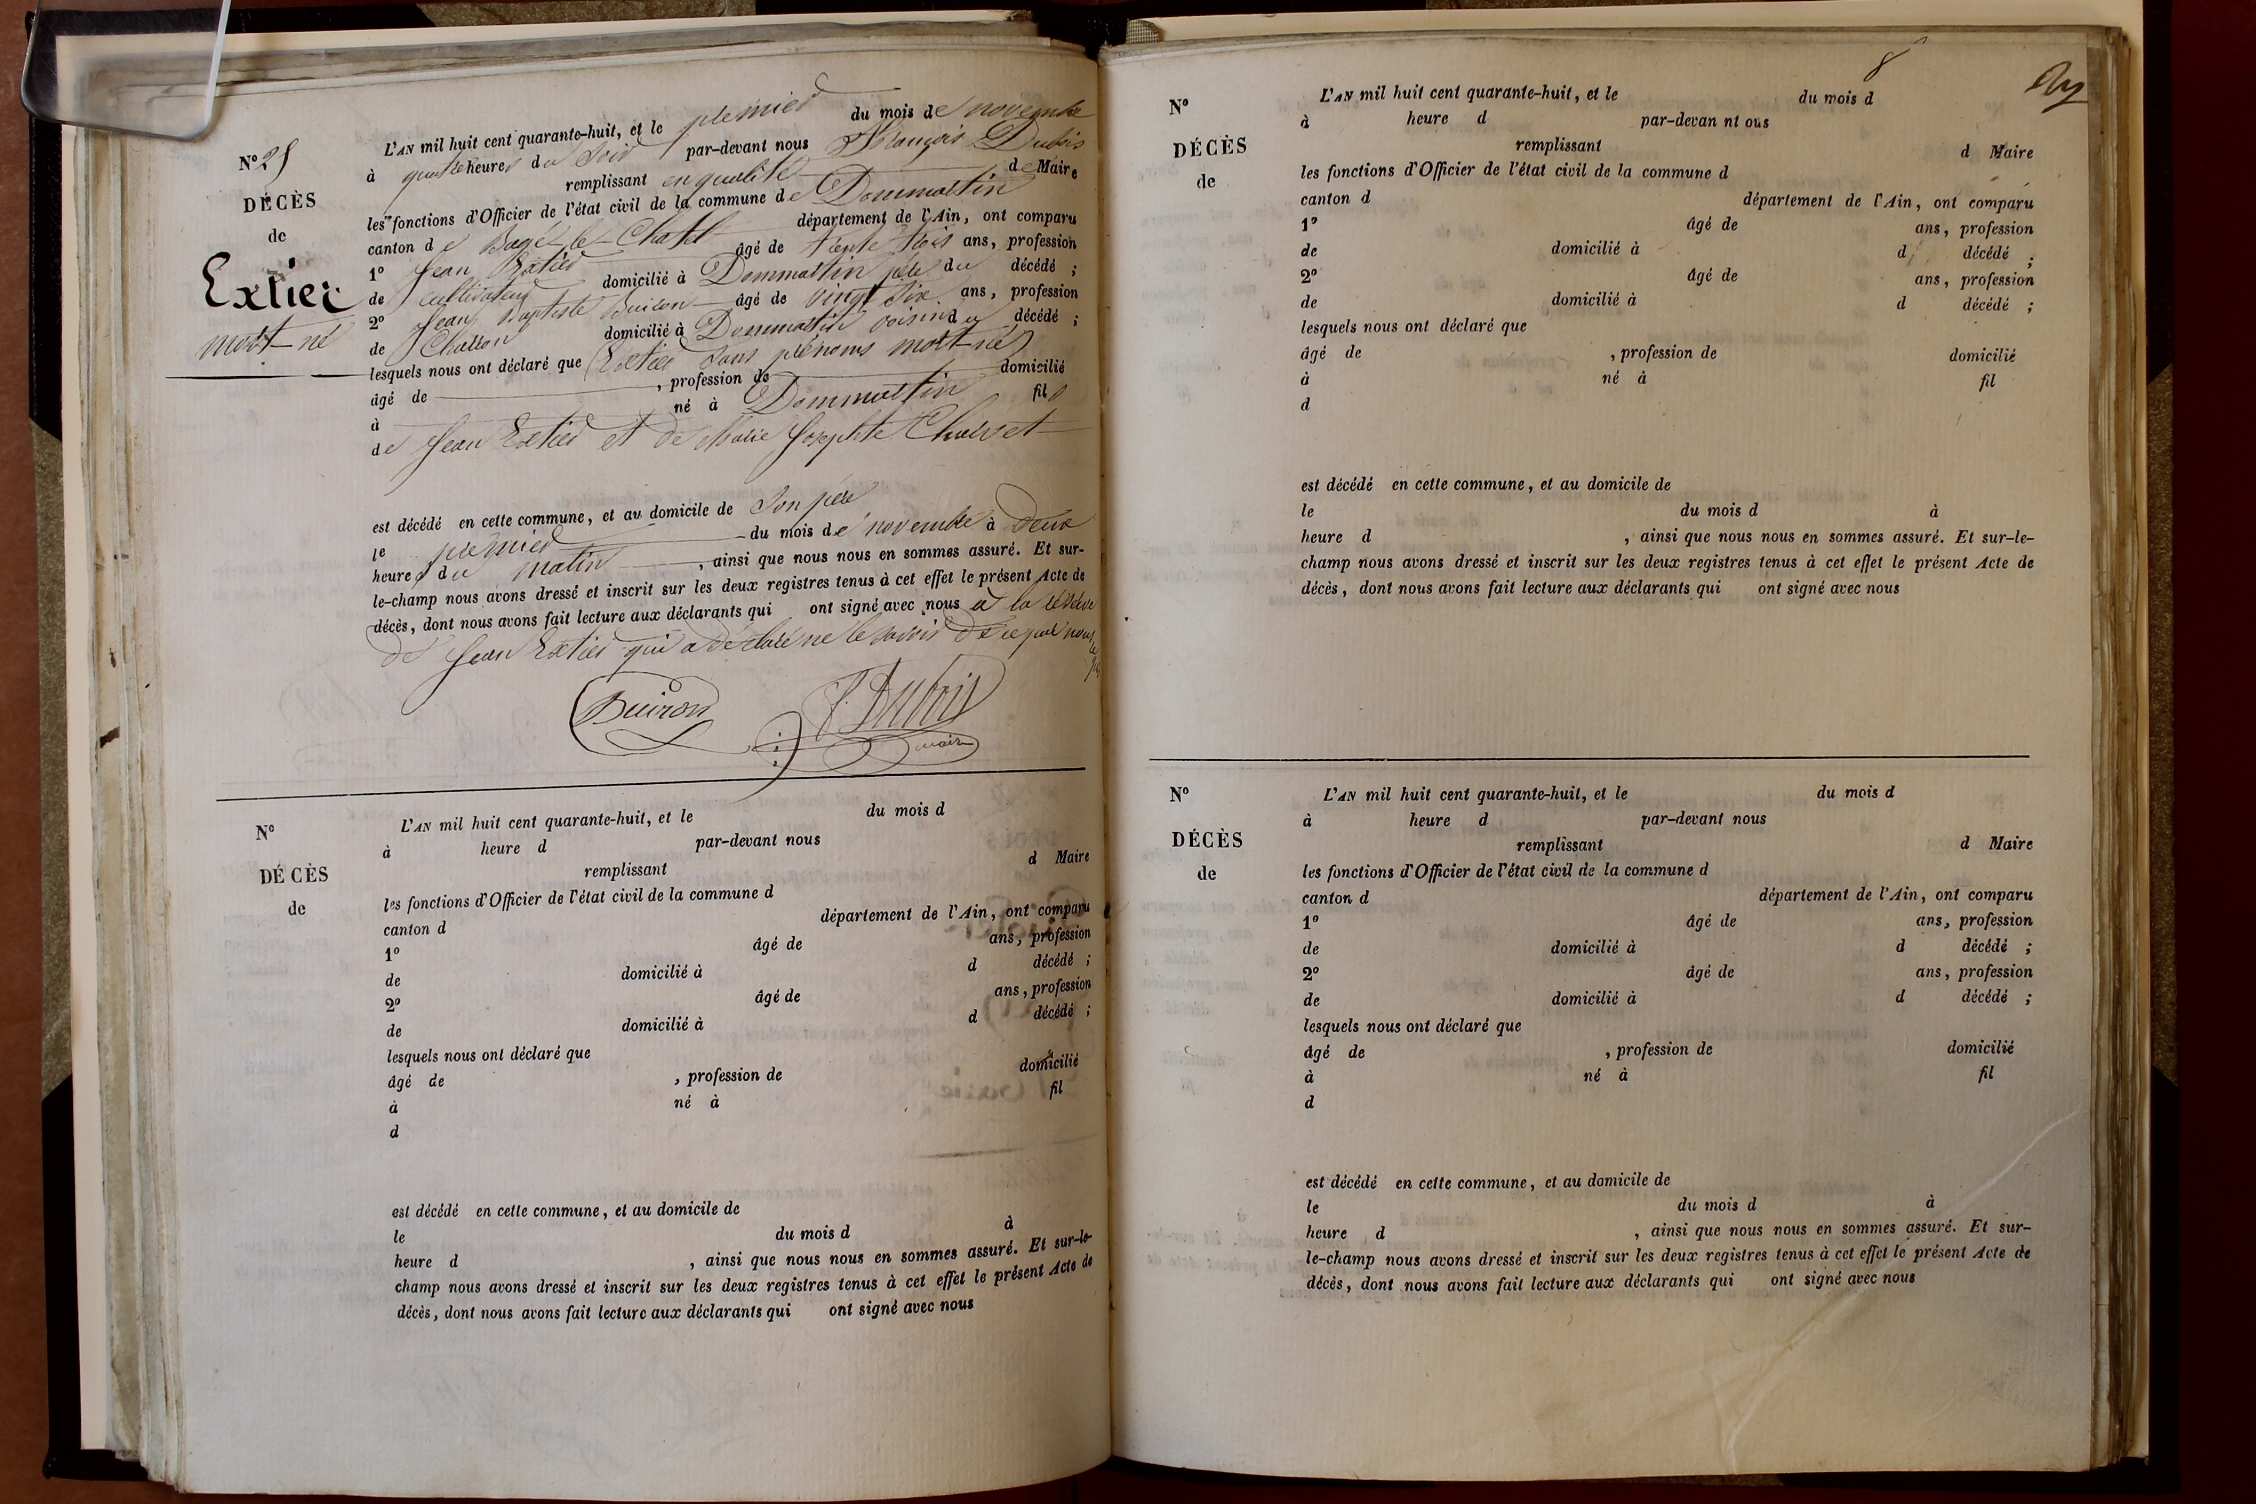 N° 25
DÉCÈS
de
Extier
mort-né
L'AN mil huit cent quarante-huit, et le premier du mois de novembre
à quatre heures du soir par-devant nous François Dubois
remplissant en qualité de Maire
les fonctions d'Officier de l'état civil de la commune de Dommartin
canton de Bagé-le-Chatel département de l'Ain, ont comparu
1° Jean Extier âgé de trente trois ans, profession
de cultivateur domicilié à Dommartin père du décédé ;
2° Jean Baptiste Buiron âgé de vingt six ans, profession
de domicilié à Dommartin voisin du décédé ;
lesquels nous ont déclaré que Extier sans prénoms mort-né
âgé de , profession de domicilié
à né à Dommartin fils
de Jean Extier et de Marie Josephte
est décédé en cette commune, et au domicile de son père
le premier du mois de novembre à deux
heures du matin , ainsi que nous nous en sommes assuré. Et sur-
le-champ nous avons dressé et inscrit sur les deux registres tenus à cet effet le présent Acte de
décès, dont nous avons fait lecture aux déclarants qui ont signé avec nous à la réserve
de Jean Extier qui a déclaré ne le savoir de ce par nous
Buiron F. Dubois
maire
N°
DÉCÈS
de
L'AN mil huit cent quarante-huit, et le du mois d
à heure d par-devant nous
remplissant d Maire
les fonctions d'Officier de l'état civil de la commune d
canton d département de l'Ain, ont comparu
1° âgé de ans, profession
de domicilié à d décédé ;
2° âgé de ans, profession
de domicilié à d décédé ;
lesquels nous ont déclaré que
âgé de , profession de domicilié
à né à fil
d
est décédé en cette commune, et au domicile de
le du mois d à
heure d , ainsi que nous nous en sommes assuré. Et sur-le-
champ nous avons dressé et inscrit sur les deux registres tenus à cet effet le présent Acte de
décès, dont nous avons fait lecture aux déclarants qui ont signé avec nous
8
N°
DÉCÈS
de
L'AN mil huit cent quarante-huit, et le du mois d
à heure d par-devan nt ous
remplissant d Maire
les fonctions d'Officier de l'état civil de la commune d
canton d département de l'Ain, ont comparu
1° âgé de ans, profession
de domicilié à d décédé ;
2° âgé de ans, profession
de domicilié à d décédé ;
lesquels nous ont déclaré que
âgé de , profession de domicilié
à né à fil
d
est décédé en cette commune, et au domicile de
le du mois d à
heure d , ainsi que nous nous en sommes assuré. Et sur-le-
champ nous avons dressé et inscrit sur les deux registres tenus à cet effet le présent Acte de
décès, dont nous avons fait lecture aux déclarants qui ont signé avec nous
N°
DÉCÈS
de
L'AN mil huit cent quarante-huit, et le du mois d
à heure d par-devant nous
remplissant d Maire
les fonctions d'Officier de l'état civil de la commune d
canton d département de l'Ain, ont comparu
1° âgé de ans, profession
de domicilié à d décédé ;
2° âgé de ans, profession
de domicilié à d décédé ;
lesquels nous ont déclaré que
âgé de , profession de domicilié
à né à fil
d
est décédé en cette commune, et au domicile de
le du mois d à
heure d , ainsi que nous nous en sommes assuré. Et sur-
le-champ nous avons dressé et inscrit sur les deux registres tenus à cet effet le présent Acte de
décès, dont nous avons fait lecture aux déclarants qui ont signé avec nous